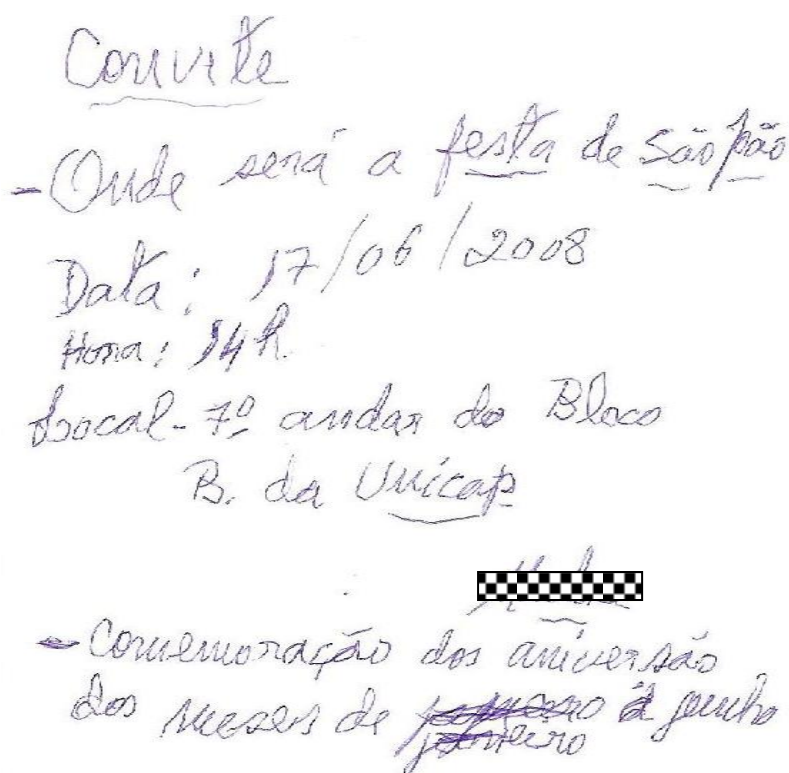 Convite
- Onde será a festa de São pão
Data: 17/06/2008
Hora: 14h.
Local - 7º andar do Bloco
B. da Unicap
- Comemoração dos aniversão
dos meses de janeiro à junho